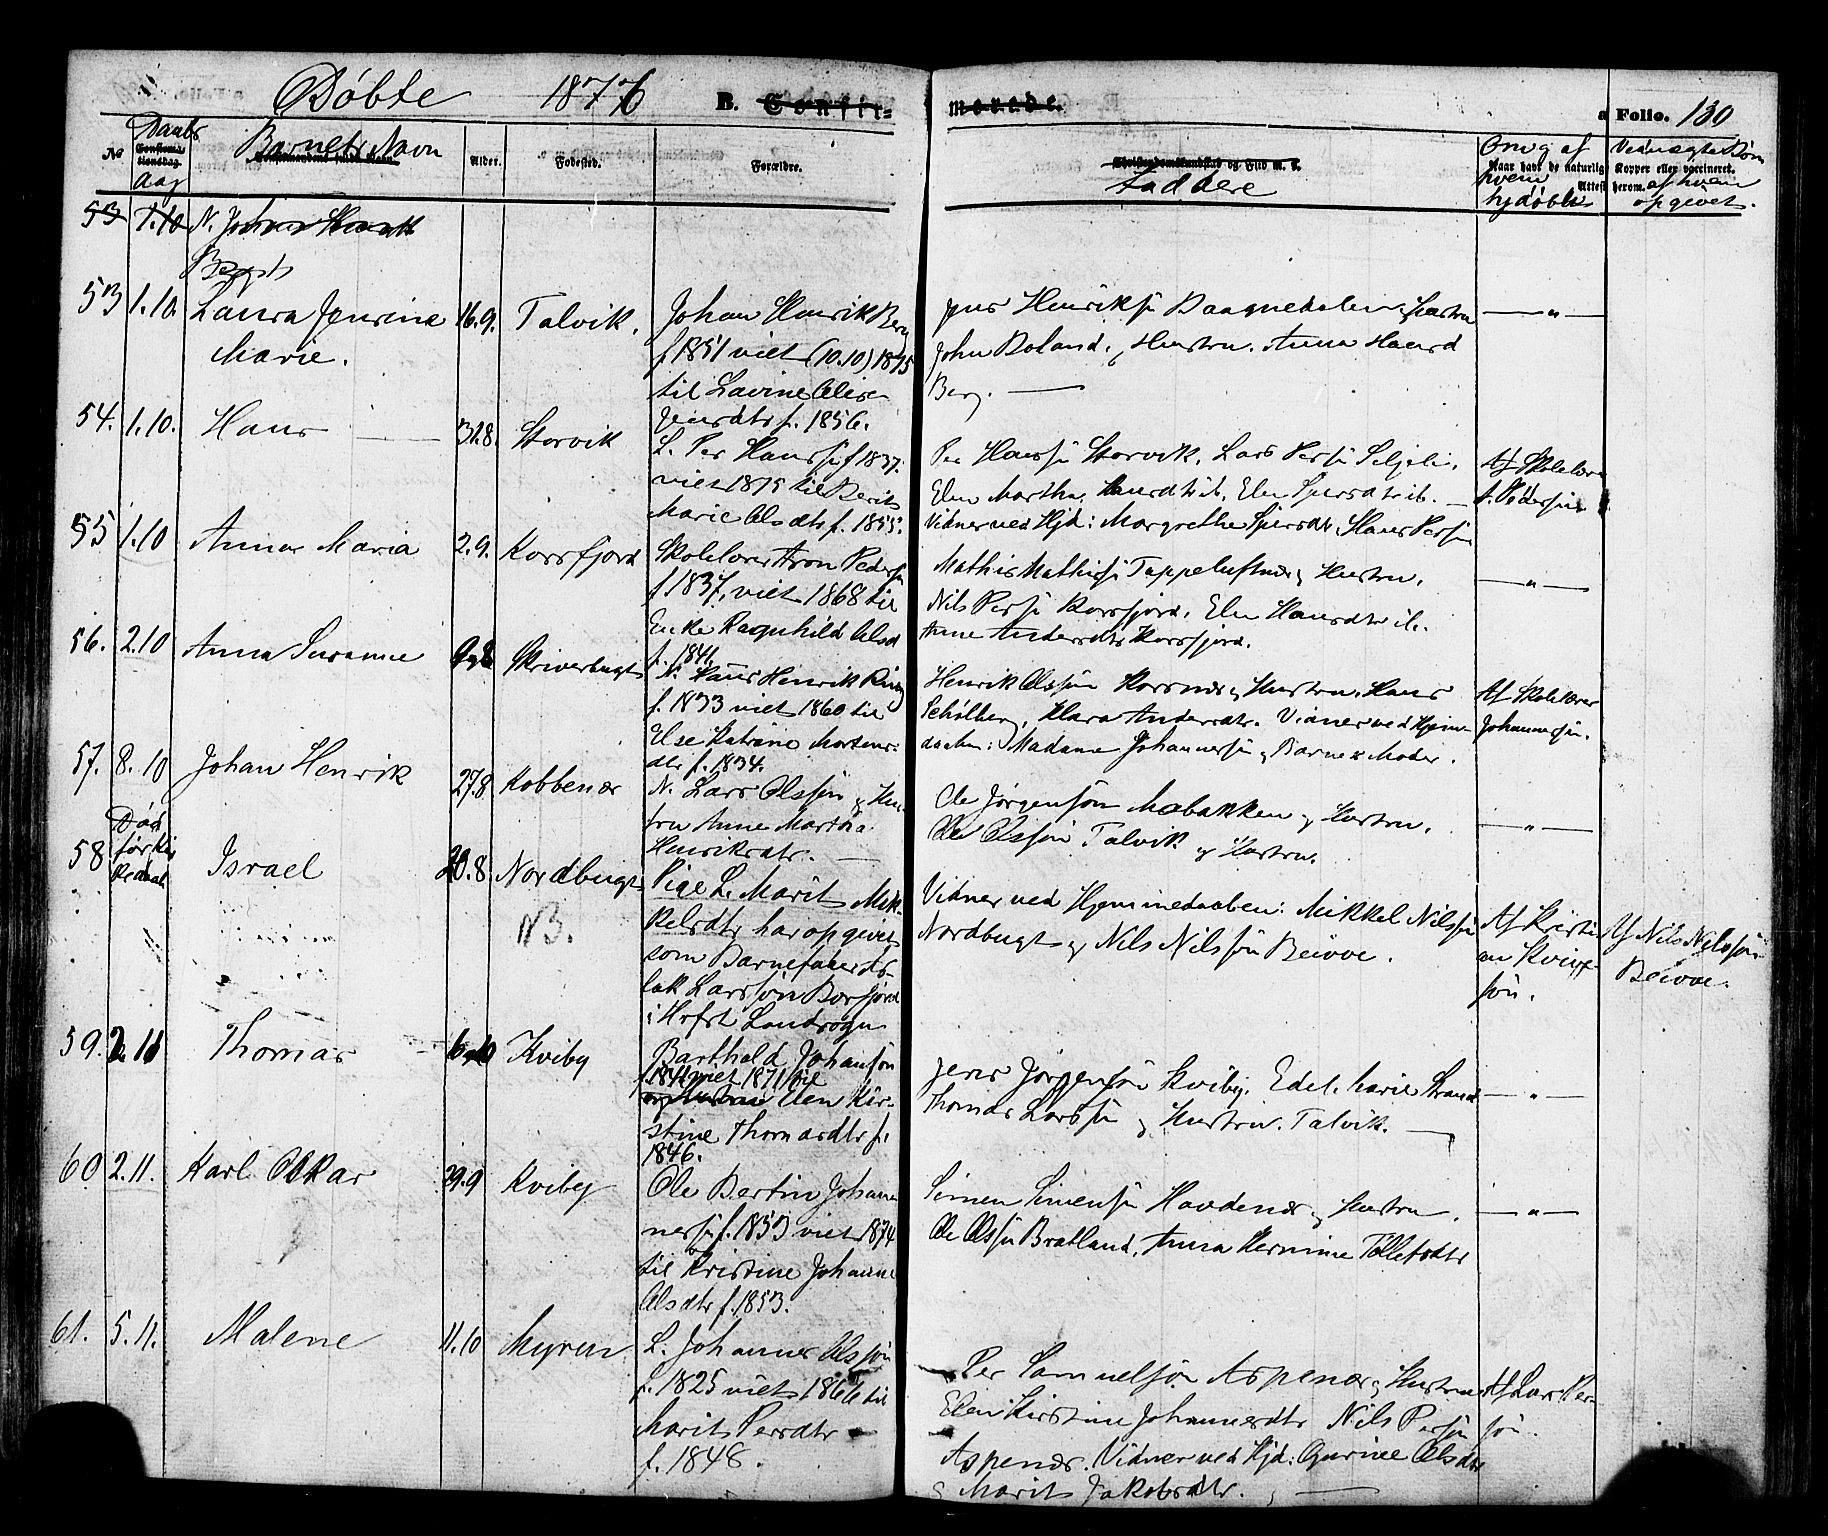 Døbte 1876 B. Confir- morede. a Folio. 130
№ Daabs Confirma-tionsdag. Dag Barnets Navn Alder. Fødested. Forældre.
Christendomskundskab og Flid m. v. Faddere
Om og af hvem hjdøbt
Naar havt de naturlige Kopper eller vaccineret. Attest herom.
Veduægte Børn af hvem opgivet.
53 1.10 N. Johan Henrik
Bergs
53 1.10. Laura Jensine 16.9. Talvik. Johan Henrik Berg
Marie. f 1851 viet (10.10) 1875
til Lavine Olise
Jensdtr f. 1856.
Jens Henriksøn Hustru — „ —
John Boland, og Hustru. Anna Haurd
Berg. —
54. 1.10. Hans — 31.8. Storvik L. Per Hanssøn f 1837.
viet 1875 til Berit
Marie Olsdtr f. 1855.
Per Hanssøn Storvik, Lars Perssøn Seljeli,
Elen Martha, ib, Elen ib. —
Vidner ved Hjd: Margrethe Hans Perssøn
Af Skolelærer
A. Pedersøn
55 1.10 Anna Maria 2.9. Korsfjord Skolelærer Aron Pedersøn
f 1837, viet 1868 til
Enke Ragnhild Olsd
f. 1841.
Mathis Mathissøn Tappeluftnæs og Hustru. — „ —
Nils Perssøn Korsfjord, Elen Hansdtr ib.
Anne Andersdtr Korsfjord.
56. 2.10 Anna Susanne Skriverbugt N. Hans Henrik
f. 1833 viet 1860 til
Else Katrine Mortens-
dtr f. 1834.
Henrik Olssøn Korsnæs og Hustru, Hans
Schølberg, Klara Andersdtr. Vidner ved Hjemme-
daaben: Madame Johannesøn og Barnets Moder.
Af Skolelærer
Johannesøn.
57. 8.10 Johan Henrik 27.8 Kobbenær N. Lars Olssøn og Hu-
stru Anne Martha
Henriksdtr. —
Ole Jørgensøn Mæbakken og Hustru. — „ —
Ole Olssøn Talvik og Hustru.
58 Død før Israel 20.8 Nordbugt Pige L. Marit Mik-
NB. kelsdtr har opgivet
som Barnefader
Larssøn
i Hfst Landsogn
Vidner ved Hjemmedaaben: Mikkel Nilssøn
Nordbugt og Nils Nilssøn Beivve.
Af Kristi-
an
søn.
Af Nils Nilssøn
Beivve.
59. 2.11 Thomas Kviby Barthold Johansøn
f 1841 viet 1871 til
Elen Kir-
stine Thomasdtr f.
1846.
Jens Jørgensøn Kviby, Edel. Marie Strand — „ —
Thomas Larssøn og Hustru. Talvik. —
60 2.11. Karl Oskar 29.9 Kviby Ole Bertin Johan-
nessøn f. 1853 viet 1874
til Kristine Johanne
Olsdtr f. 1853.
Simen Simensøn Havdenæs og Hustru. — „ —
Ole Olssøn Bratland, Anna Hermine Tollefsdtr
61. 5.11. Malene 11.10 Myren L. Johannes Olssøn
f. 1825 viet 1866 til
Marit Persdtr
f. 1848.
Per Samuelsøn Aspenæs og Hustru
Elen Kirstine Johannesdtr Nils Perssøn
Aspenæs. Vidner ved Hjd: Gurine Olsdtr
og Marit Jakobsdtr. —
Af Lars Per-
søn.